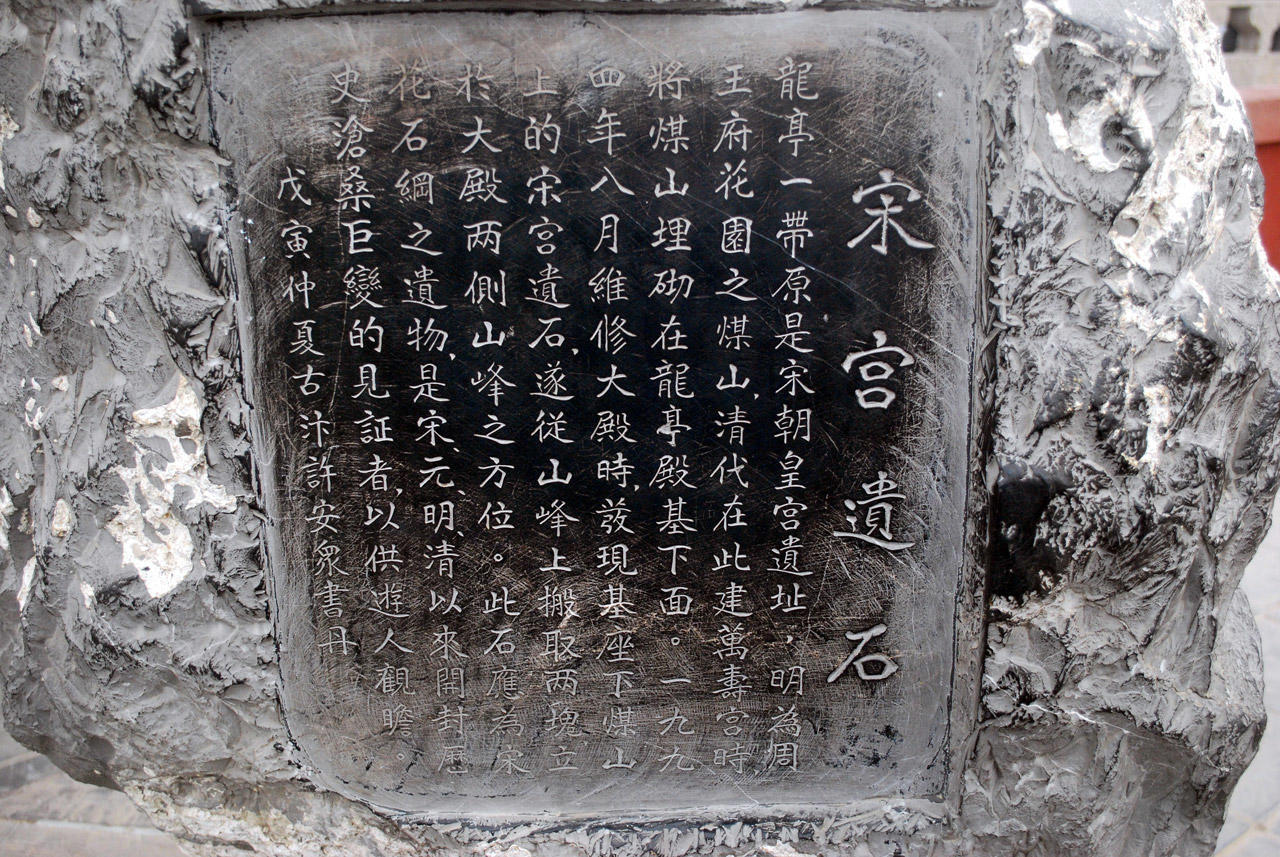 宋宮遺石
龍亭一帶原是宋朝皇宮遺址，明為周
王府花園之煤山，清代在此建萬壽宮時
將煤山埋砌在龍亭殿基下面。一九九
四年八月維修大殿時，發現基座下煤山
上的宋宮遺石，遂從山峰上搬取两塊，立
於大殿两側山峰之方位。此石應為宋
花石綱之遺物，是宋、元、明、清以來開封歷
史滄桑巨變的見証者，以供遊人觀瞻。
戊寅仲夏古汴許安眾書丹